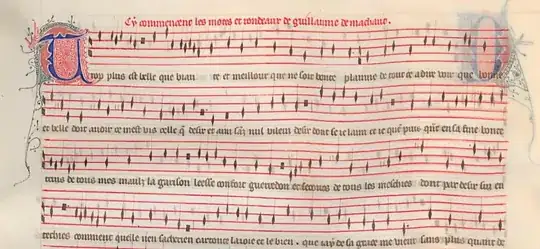 Cy commencent les motes et rondeaux de guillaume de machaut.
Trop plus est belle que biau te et millour que ne soit bonte plainne de tout ce a dire voir que bonne
et belle doit avoir ce mest vis celle desir et aim nul vilein desir dont se ie laim et ie en sa fine bonte
de tous mes maulz la garison leesse confort guerredon et secours de tous les meschies dont par desir sui en
comment quelle nen et toute la ioie et le bien. que iay de sa grace me vient sans plus